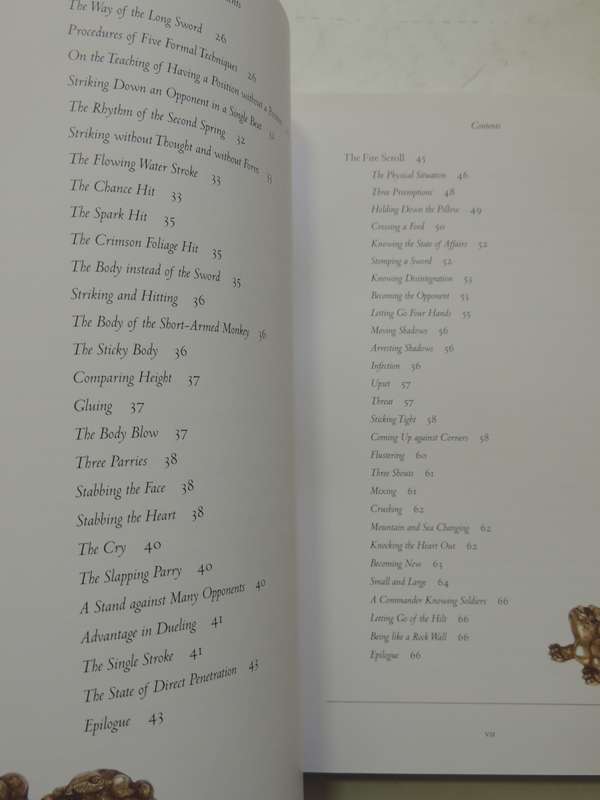 The Way of the Long Sword 26
Procedures of Five Formal Techniques 26
On the Teaching of Having a Position without a
Striking Down an Opponent in a Single Beat
The Rhythm of the Second Spring 32
Striking without Thought and without Form 33
The Flowing Water Stroke 33
The Chance Hit 33
The Spark Hit 35
The Crimson Foliage Hit 35
The Body instead of the Sword 35
Striking and Hitting 36
The Body of the Short-Armed Monkey 36
The Sticky Body 36
Comparing Height 37
Gluing 37
The Body Blow 37
Three Parries 38
Stabbing the Face 38
Stabbing the Heart 38
The Cry 40
The Slapping Parry 40
A Stand against Many Opponents 40
Advantage in Dueling 41
The Single Stroke 41
The State of Direct Penetration 43
Epilogue 43
Contents
The Fire Scroll 45
The Physical Situation 46
Three Preemptions 48
Holding Down the Pillow 49
Crossing a Ford 50
Knowing the State of Affairs 52
Stomping a Sword 52
Knowing Disintegration 53
Becoming the Opponent 53
Letting Go Four Hands 55
Moving Shadows 56
Arresting Shadows 56
Infection 56
Upset 57
Threat 57
Sticking Tight 58
Coming Up against Corners 58
Flustering 60
Three Shouts 61
Mixing 61
Crushing 62
Mountain and Sea Changing 62
Knocking the Heart Out 62
Becoming New 63
Small and Large 64
A Commander Knowing Soldiers 66
Letting Go of the Hilt 66
Being like a Rock Wall 66
Epilogue 66
vii